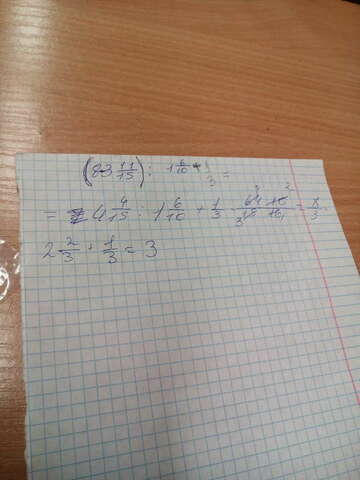 (8-3 11/15) : 1 6/10 + 1/3 =
= 4 4/15 : 1 6/10 + 1/3 64·10/15·16 = 8/3
2 2/3 + 1/3 = 3